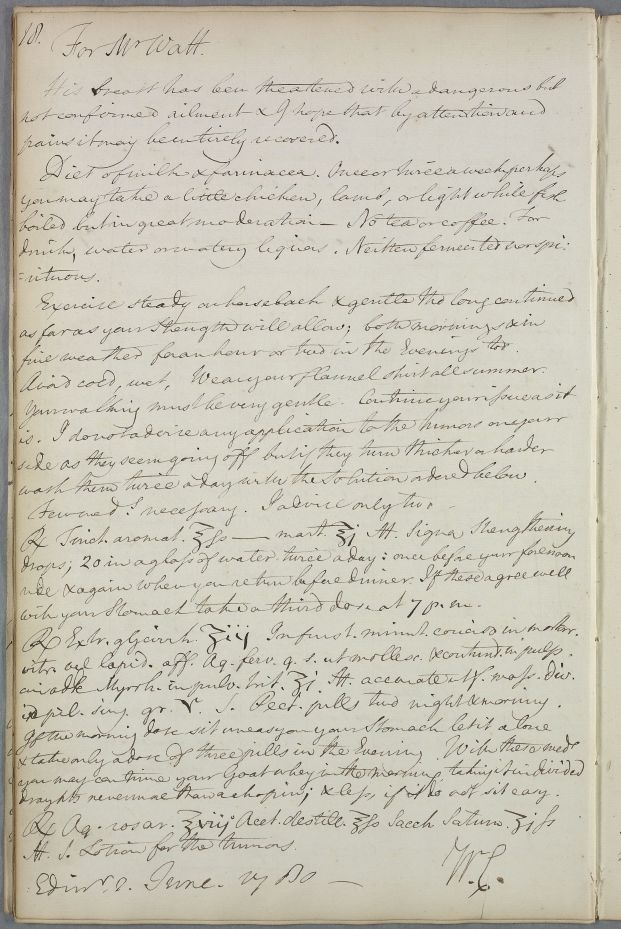 18.
For Mr Watt.
His breast has been threatened with a dangerous but
not confirmed ailment & I hope that by attention and
pains it may be entirely recovered.
Diet of milk & farinacea. Once or twice a week perhaps
you may take a little chicken, lamb, or light white fish
boiled but in great moderation — No tea or coffee. For
drink, water or watery liquors. Neither fermented nor spi:
:rituous.
Exercise steady on horseback & gentle tho long continued
as far as your strength will allow; both mornings & in
fine weather for an hour or two in the Evenings too.
Avoid cold, wet, Wear your flannel shirt all summer.
Your walking must be very gentle. Continue your issue as it
is. I do not advise any application to the tumors on your
side as they seem going off but if they turn thicker or harder
wash them twice a day with the Solution ordered below.
Few med.s necessary. I advise only two
℞ Tinct. aromat. ℥ss — mart. ℥j M. Signa Strengthening
drops; 20 in a glass of water twice a day: once before your forenoon
ride & again when you return before dinner. If these agree well
with your Stomach take a third dose at 7 p.m.
℞ Extr. glycirrh. ℥iij In frust. minut. concis. in mortar.
vitr. vel lapid. aff. Aq. ferv. q. s. ut mollesc. & contund. in pulp.
cui adde Myrrh. in pulv. trit. ℥j M. accurate & f. mass. div.
in pil. sing. gr. V. S. Pect. pills two night & morning.
If the morning dose sit uneasy on your Stomach let it alone
& take only a dose of three pills in the Evening. With these med.s
you may continue your Goat whey in the morning taking it in divided
draughts never more than a chopin; & less, if it do not sit easy.
℞ Aq. rosar. ℥viij Acet. destill. ℥ss Sacch. Saturn. ʒiss
M. S. Lotion for the tumors.
Edinr. 2. June. 1780 —
W.C.